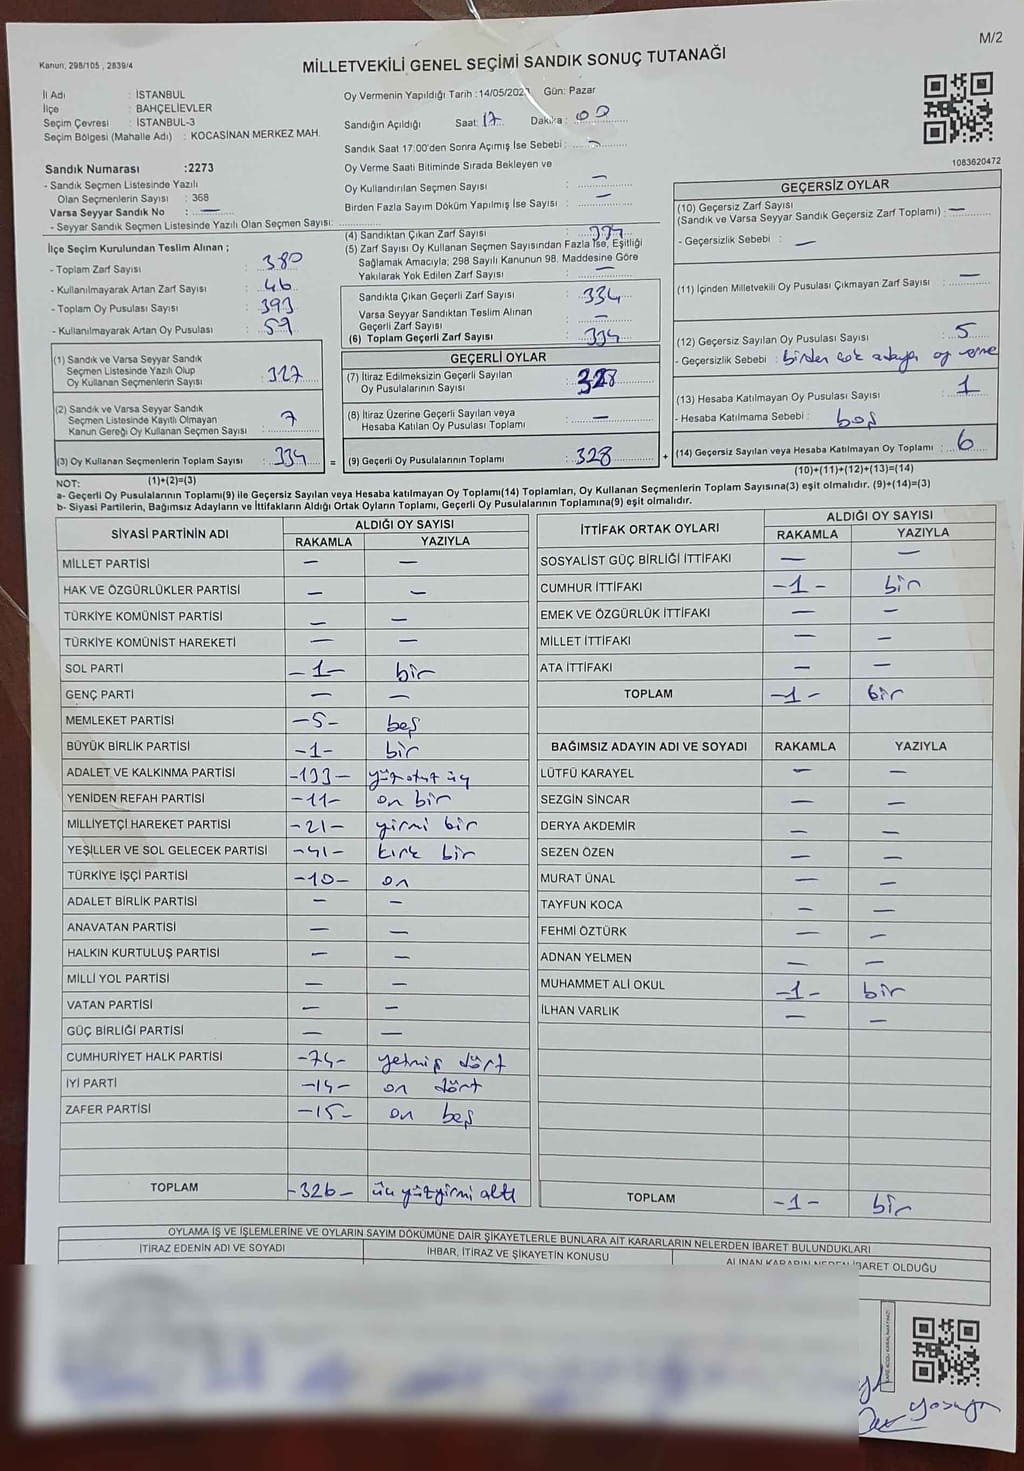 M/2
Kanun: 298/105 , 2839/4
MİLLETVEKİLİ GENEL SEÇİMİ SANDIK SONUÇ TUTANAĞI
İl Adı : İSTANBUL
İlçe : BAHÇELİEVLER
Seçim Çevresi : İSTANBUL-3
Seçim Bölgesi (Mahalle Adı) : KOCASİNAN MERKEZ MAH.
Sandık Numarası :2273
- Sandık Seçmen Listesinde Yazılı
Olan Seçmenlerin Sayısı : 368
Varsa Seyyar Sandık No : —
- Seyyar Sandık Seçmen Listesinde Yazılı Olan Seçmen Sayısı:
Oy Vermenin Yapıldığı Tarih :14/05/2023 Gün: Pazar
Sandığın Açıldığı Saat: 17 Dakika : 00
Sandık Saat 17:00'den Sonra Açımış İse Sebebi : —
Oy Verme Saati Bitiminde Sırada Bekleyen ve
Oy Kullandırılan Seçmen Sayısı : —
Birden Fazla Sayım Döküm Yapılmış İse Sayısı : —
1083620472
İlçe Seçim Kurulundan Teslim Alınan ;
- Toplam Zarf Sayısı : 380
- Kullanılmayarak Artan Zarf Sayısı : 46
- Toplam Oy Pusulası Sayısı : 393
- Kullanılmayarak Artan Oy Pusulası : 59
(1) Sandık ve Varsa Seyyar Sandık
Seçmen Listesinde Yazılı Olup
Oy Kullanan Seçmenlerin Sayısı : 327
(2) Sandık ve Varsa Seyyar Sandık
Seçmen Listesinde Kayıtlı Olmayan
Kanun Gereği Oy Kullanan Seçmen Sayısı : 7
(3) Oy Kullanan Seçmenlerin Toplam Sayısı : 334 =
(1)+(2)=(3)
(4) Sandıktan Çıkan Zarf Sayısı : 334
(5) Zarf Sayısı Oy Kullanan Seçmen Sayısından Fazla İse, Eşitliği
Sağlamak Amacıyla; 298 Sayılı Kanunun 98. Maddesine Göre
Yakılarak Yok Edilen Zarf Sayısı : —
Sandıkta Çıkan Geçerli Zarf Sayısı : 334
Varsa Seyyar Sandıktan Teslim Alınan
Geçerli Zarf Sayısı : —
(6) Toplam Geçerli Zarf Sayısı : 334
GEÇERLİ OYLAR
(7) İtiraz Edilmeksizin Geçerli Sayılan
Oy Pusulalarının Sayısı : 328
(8) İtiraz Üzerine Geçerli Sayılan veya
Hesaba Katılan Oy Pusulası Toplamı : —
(9) Geçerli Oy Pusulalarının Toplamı : 328 +
GEÇERSİZ OYLAR
(10) Geçersiz Zarf Sayısı
(Sandık ve Varsa Seyyar Sandık Geçersiz Zarf Toplamı) : —
- Geçersizlik Sebebi : —
(11) İçinden Milletvekili Oy Pusulası Çıkmayan Zarf Sayısı : —
(12) Geçersiz Sayılan Oy Pusulası Sayısı : 5
- Geçersizlik Sebebi : birden çok adaya oy verme
(13) Hesaba Katılmayan Oy Pusulası Sayısı : 1
- Hesaba Katılmama Sebebi : boş
(14) Geçersiz Sayılan veya Hesaba Katılmayan Oy Toplamı : 6
(10)+(11)+(12)+(13)=(14)
NOT:
a- Geçerli Oy Pusulalarının Toplamı(9) ile Geçersiz Sayılan veya Hesaba katılmayan Oy Toplamı(14) Toplamları, Oy Kullanan Seçmenlerin Toplam Sayısına(3) eşit olmalıdır. (9)+(14)=(3)
b- Siyasi Partilerin, Bağımsız Adayların ve İttifakların Aldığı Ortak Oyların Toplamı, Geçerli Oy Pusulalarının Toplamına(9) eşit olmalıdır.
SİYASİ PARTİNİN ADI ALDIĞI OY SAYISI
RAKAMLA YAZIYLA
MİLLET PARTİSİ — —
HAK VE ÖZGÜRLÜKLER PARTİSİ — —
TÜRKİYE KOMÜNİST PARTİSİ — —
TÜRKİYE KOMÜNİST HAREKETİ — —
SOL PARTİ -1- bir
GENÇ PARTİ — —
MEMLEKET PARTİSİ -5- beş
BÜYÜK BİRLİK PARTİSİ -1- bir
ADALET VE KALKINMA PARTİSİ -133- yüzotuz üç
YENİDEN REFAH PARTİSİ -11- on bir
MİLLİYETÇİ HAREKET PARTİSİ -21- yirmi bir
YEŞİLLER VE SOL GELECEK PARTİSİ -41- kırk bir
TÜRKİYE İŞÇİ PARTİSİ -10- on
ADALET BİRLİK PARTİSİ — —
ANAVATAN PARTİSİ — —
HALKIN KURTULUŞ PARTİSİ — —
MİLLİ YOL PARTİSİ — —
VATAN PARTİSİ — —
GÜÇ BİRLİĞİ PARTİSİ — —
CUMHURİYET HALK PARTİSİ -74- yetmiş dört
İYİ PARTİ -14- on dört
ZAFER PARTİSİ -15- on beş
TOPLAM -326- üç yüzyirmi altı
İTTİFAK ORTAK OYLARI ALDIĞI OY SAYISI
RAKAMLA YAZIYLA
SOSYALİST GÜÇ BİRLİĞİ İTTİFAKI — —
CUMHUR İTTİFAKI -1- bir
EMEK VE ÖZGÜRLÜK İTTİFAKI — —
MİLLET İTTİFAKI — —
ATA İTTİFAKI — —
TOPLAM -1- bir
BAĞIMSIZ ADAYIN ADI VE SOYADI RAKAMLA YAZIYLA
LÜTFÜ KARAYEL — —
SEZGİN SİNCAR — —
DERYA AKDEMİR — —
SEZEN ÖZEN — —
MURAT ÜNAL — —
TAYFUN KOCA — —
FEHMİ ÖZTÜRK — —
ADNAN YELMEN — —
MUHAMMET ALİ OKUL -1- bir
İLHAN VARLIK — —
TOPLAM -1- bir
OYLAMA İŞ VE İŞLEMLERİNE VE OYLARIN SAYIM DÖKÜMÜNE DAİR ŞİKAYETLERLE BUNLARA AİT KARARLARIN NELERDEN İBARET BULUNDUKLARI
İTİRAZ EDENİN ADI VE SOYADI İHBAR, İTİRAZ VE ŞİKAYETİN KONUSU ALINAN KARARIN NEDEN İBARET OLDUĞU